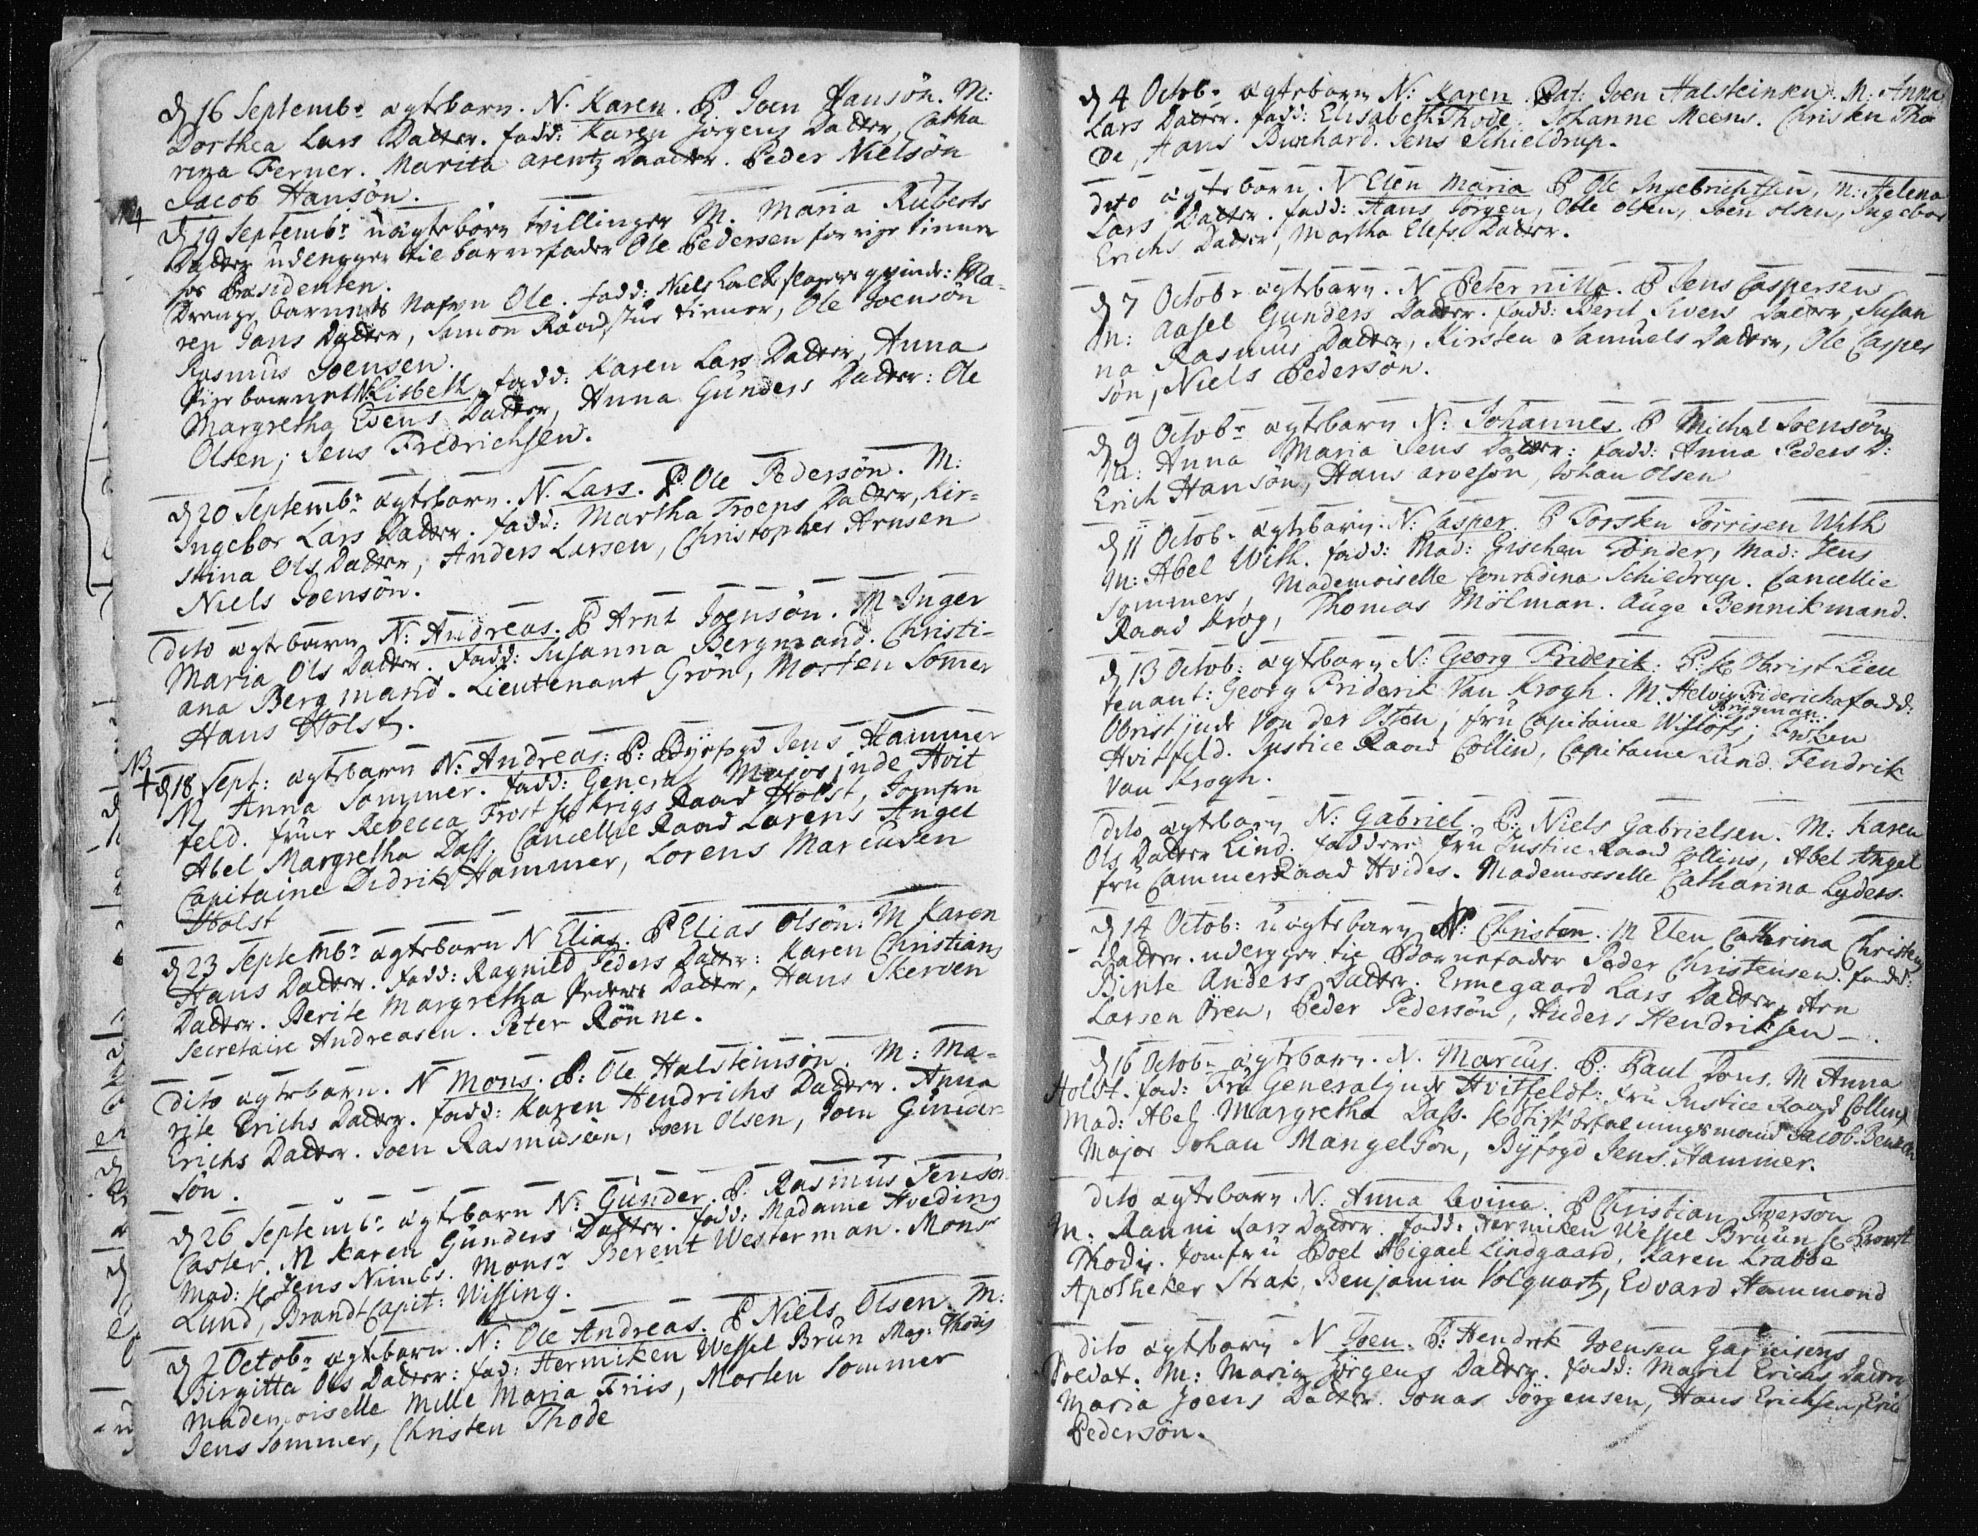 d 16 Septembr ægtebarn. N. Karen. P Joen Hansön. M:
Dorthea Lars Datter. fadd: Karen Jörgens Datter, Catha
rina Ferner. Marita arentz Daatter. Peder Nielsön
Jacob Hansön.
d 19 Septembr uægtebörn tvillinger M. Maria Ruberts
Datter udlegger til barnefader Ole Pedersen for rige tienner
hos Præsidenten.
Drenge barnets Nafvn Ole. fadd: Niels Qvinde: Ma-
ren Jans Datter, Simon Raadstue tienner, Ole Joensön
Rasmus Joensen.
Pige barnet N: Lisbeth, fadd: Karen Lars Datter, Anna
Margretha Evens Datter, Anna Gunders Datter: Ole
Olsen, Jens Fredrichsen.
d 20 Septembr ægtebarn. N. Lars. P Ole Pedersön. M:
Ingebor Lars Datter. fadd: Martha Troens Datter, Kir-
stina Ols Datter, Anders Larsen, Christopher Arnsen
Niels Joensön.
Dito ægtebarn N: Andreas. P Arnt Joensön. M Inger
Maria Ols Datter. fadd: Susanna Bergmand. Christi-
ana Bergmand. Lieutenant Grön, Morten Somer
Hans Holst.
NB
d 18 Sept: ægtebarn N: Andreas: P: Byfogd Jens Hammer
M Anna Sommer. fadd: General Majorinde Hvit
feld. fruer Rebecca Frost sl Krigs Raad Holst, Jomfru
Abel Margretha Dass. Cancellie Raad Lorens Angel
Capitaine Didrik Hammer, Lorens Marcusen
Holst
d 23 Septembr ægtebarn N Elias. P Elias Olsön. M Karen
Hans Datter. fadd: Ragnild Peders Datter: Karen Christians
Datter. Berite Margretha Peders Datter, Hans Skerven
Secretaire Andreasen. Peter Rönne.
Dito ægtebarn. N Mons. P: Ole Halsteinsön. M: Ma-
rite Erichs Datter. fadd: Karen Hendrichs Datter. Anna
Erichs Datter. Joen Rasmusön, Joen Olsen, Joen Gunder-
sön.
d 26 Septembr ægtebarn N: Gunder. P: Rasmus Jensön
Caster. M Karen Gunders Datter. fadd: Madame Hveding
Mad: sl Jens Nimbs. Monsr Berent Westerman. Monsr
Lund, Brandt Capit: Wissing.
d 2 Octobr ægtebarn. N: Ole Andreas. P Niels Olsen. M:
Birgitta Ols Datter: fad: Hermiken Wessel Brün Mag: Thodis
Mademoiselle Mille Maria Friis, Morten Sommer
Jens Sommer, Christen Thode
d 4 Octobr ægtebarn N: Karen. Pat: Joen Halsteinsen. M: Anna
Lars Datter. fadd: Elisabeth Thode. Johanne Meens. Christen Tho
de, Hans Burchard. Jens Schieldrup.
dito ægtebarn. N Elen Maria P Ole Ingebrichtsen, M: Helena
Lars Datter. fadd: Hans Jörgen, Ole Olsen, Joen Olsen, Ingebor
Erichs Datter, Martha Elefs Datter.
d 7 Octobr ægtebarn. N Peternilla. P Jens Caspersen
M: Aasel Gunders Datter. fadd: Berit Sivers Datter, Susan
na Rasmus Datter, Kirsten Samuels Datter, Ole Casper
sön, Niels Pedersön.
d 9 Octobr ægtebarn N: Johannes. P Michel Svensön
M: Anna Maria Jens Datter: fadd: Anna Peders D:
Erich Hansön, Hans Arvesön, Johan Olsen
d 11 Octobr ægtebarn. N: Casper. P Torsten Törrisen With
M: Abel With. fadd: Mad: Gischen Tönder, Mad: Jens
Sommers, Mademoiselle Conradina Schieldrup. Cancellie
Raad Krog, Thomas Mölman. Auge Bennikmand.
d 13 Octob: ægtebarn N: Georg Friderik: P: Hr Obrist Lieu
tenant: Georg Friderik Van Krogh. M. Helvig Fridericha fadd:
Brügman.
Obristinde Von der Osten, fru Capitaine Wislöfs,
Hvitfeld. Justice Raad Collin, Capitaine Lund. Fendrik
Van Krogh.
Dito ægtebarn N: Gabriel. P. Niels Gabrielsen. M: Karen
Ols Datter Lind. Faddere Fru Justice Raad Collins, Abel Angel
fru CammerRaad Hvides. Mademoiselle Catharina Lyders.
d 14 Octob: uægtebarn N: Christen. M Elen Cathrina Christens
Datter. udlegger til Barnefader Peder Christensen. fadd:
Birte Anders Datter. Ermegaard Lars Datter, Arn
Larsen Ören, Peder Pedersön, Anders Hendriksen -.
d 16 Octobr ægtebarn. N. Marcus. P: Paul Dons. M Anna
Holst. fad: Fru Generalinde Hvitfeldt: fru Justice Raad Collins
Mad: Abel Margretha Dass. Jacob
Major Johan Mangelsön, Byfogd Jens Hammer.
Dito ægtebarn N. Anna Levina. P Christian Iversön
M. Ranni Lars Datter. fadd: Hermiken Wessel Bruun sl Provst
Thodis. Jomfru Boel Abigael Lindgaard, Karen Krabbe
Apotheker Strak, Benjamin Volquartz, Edvard Hammond
Dito ægtebarn N Joen. P: Hendrik Joensen Garnisons
Soldat. M: Maria Jörgens Datter. fadd: Marit Erichs Datter
Maria Joens Datter. Jonas Jörgensen, Hans Erichsen, Erich
Pedersön.